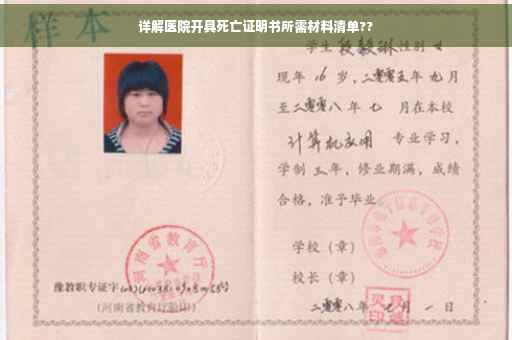 详解医院开具死亡证明书所需材料清单??
样本
学生 段毅琳 性别 女
现年 16 岁，二零零五年 九 月
至二零零八年 七 月在本校
计算机应用 专业学习，
学制 三 年，修业期满，成绩
合格，准予毕业。
学校（章）
校长（章）
二零零八年 七 月 一 日
河南省教育厅
豫教职专证字
（河南省教育厅验印）